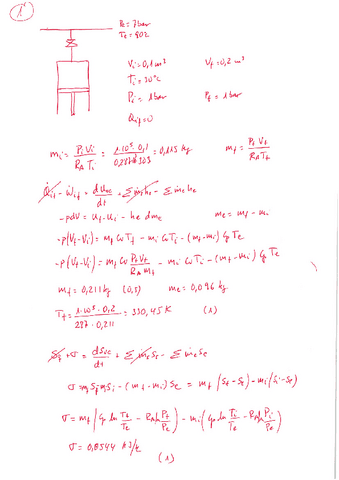 1
Pe = 7bar
Te = 90℃
Vi = 0,1m³ Vf = 0,2 m³
Ti = 30°C
Pi = 1bar Pf = 1bar
Qif = 0
mi = Pi Vi / RA Ti = 1·10⁵·0,1 / 0,287·303 = 0,115 kg mf = Pf Vf / RA Tf
Q̇if - Ẇif = dUvc/dt + Σ ṁs hs - Σ ṁe he
-pdV = Uf - Ui - he dme me = mf - mi
-p(Vf-Vi) = mf Cv Tf - mi Cv Ti - (mf-mi) Cp Te
-p(Vf-Vi) = mf Cv Pf Vf / RA mf - mi Cv Ti - (mf-mi) Cp Te
mf = 0,211 kg (0,5) me = 0,096 kg
Tf = 1·10⁵·0,2 / 287·0,211 = 330,45 K (1)
+ σ̇ = dSvc/dt + Σ ṁs Ss - Σ ṁe Se
σ = mf Sf - mi Si - (mf-mi) Se = mf (Sf-Se) - mi (Si-Se)
σ = mf (Cp ln Tf/Te - RA ln Pf/Pe) - mi (Cp ln Ti/Te - RA ln Pi/Pe)
σ = 0,0544 kJ/k
(1)